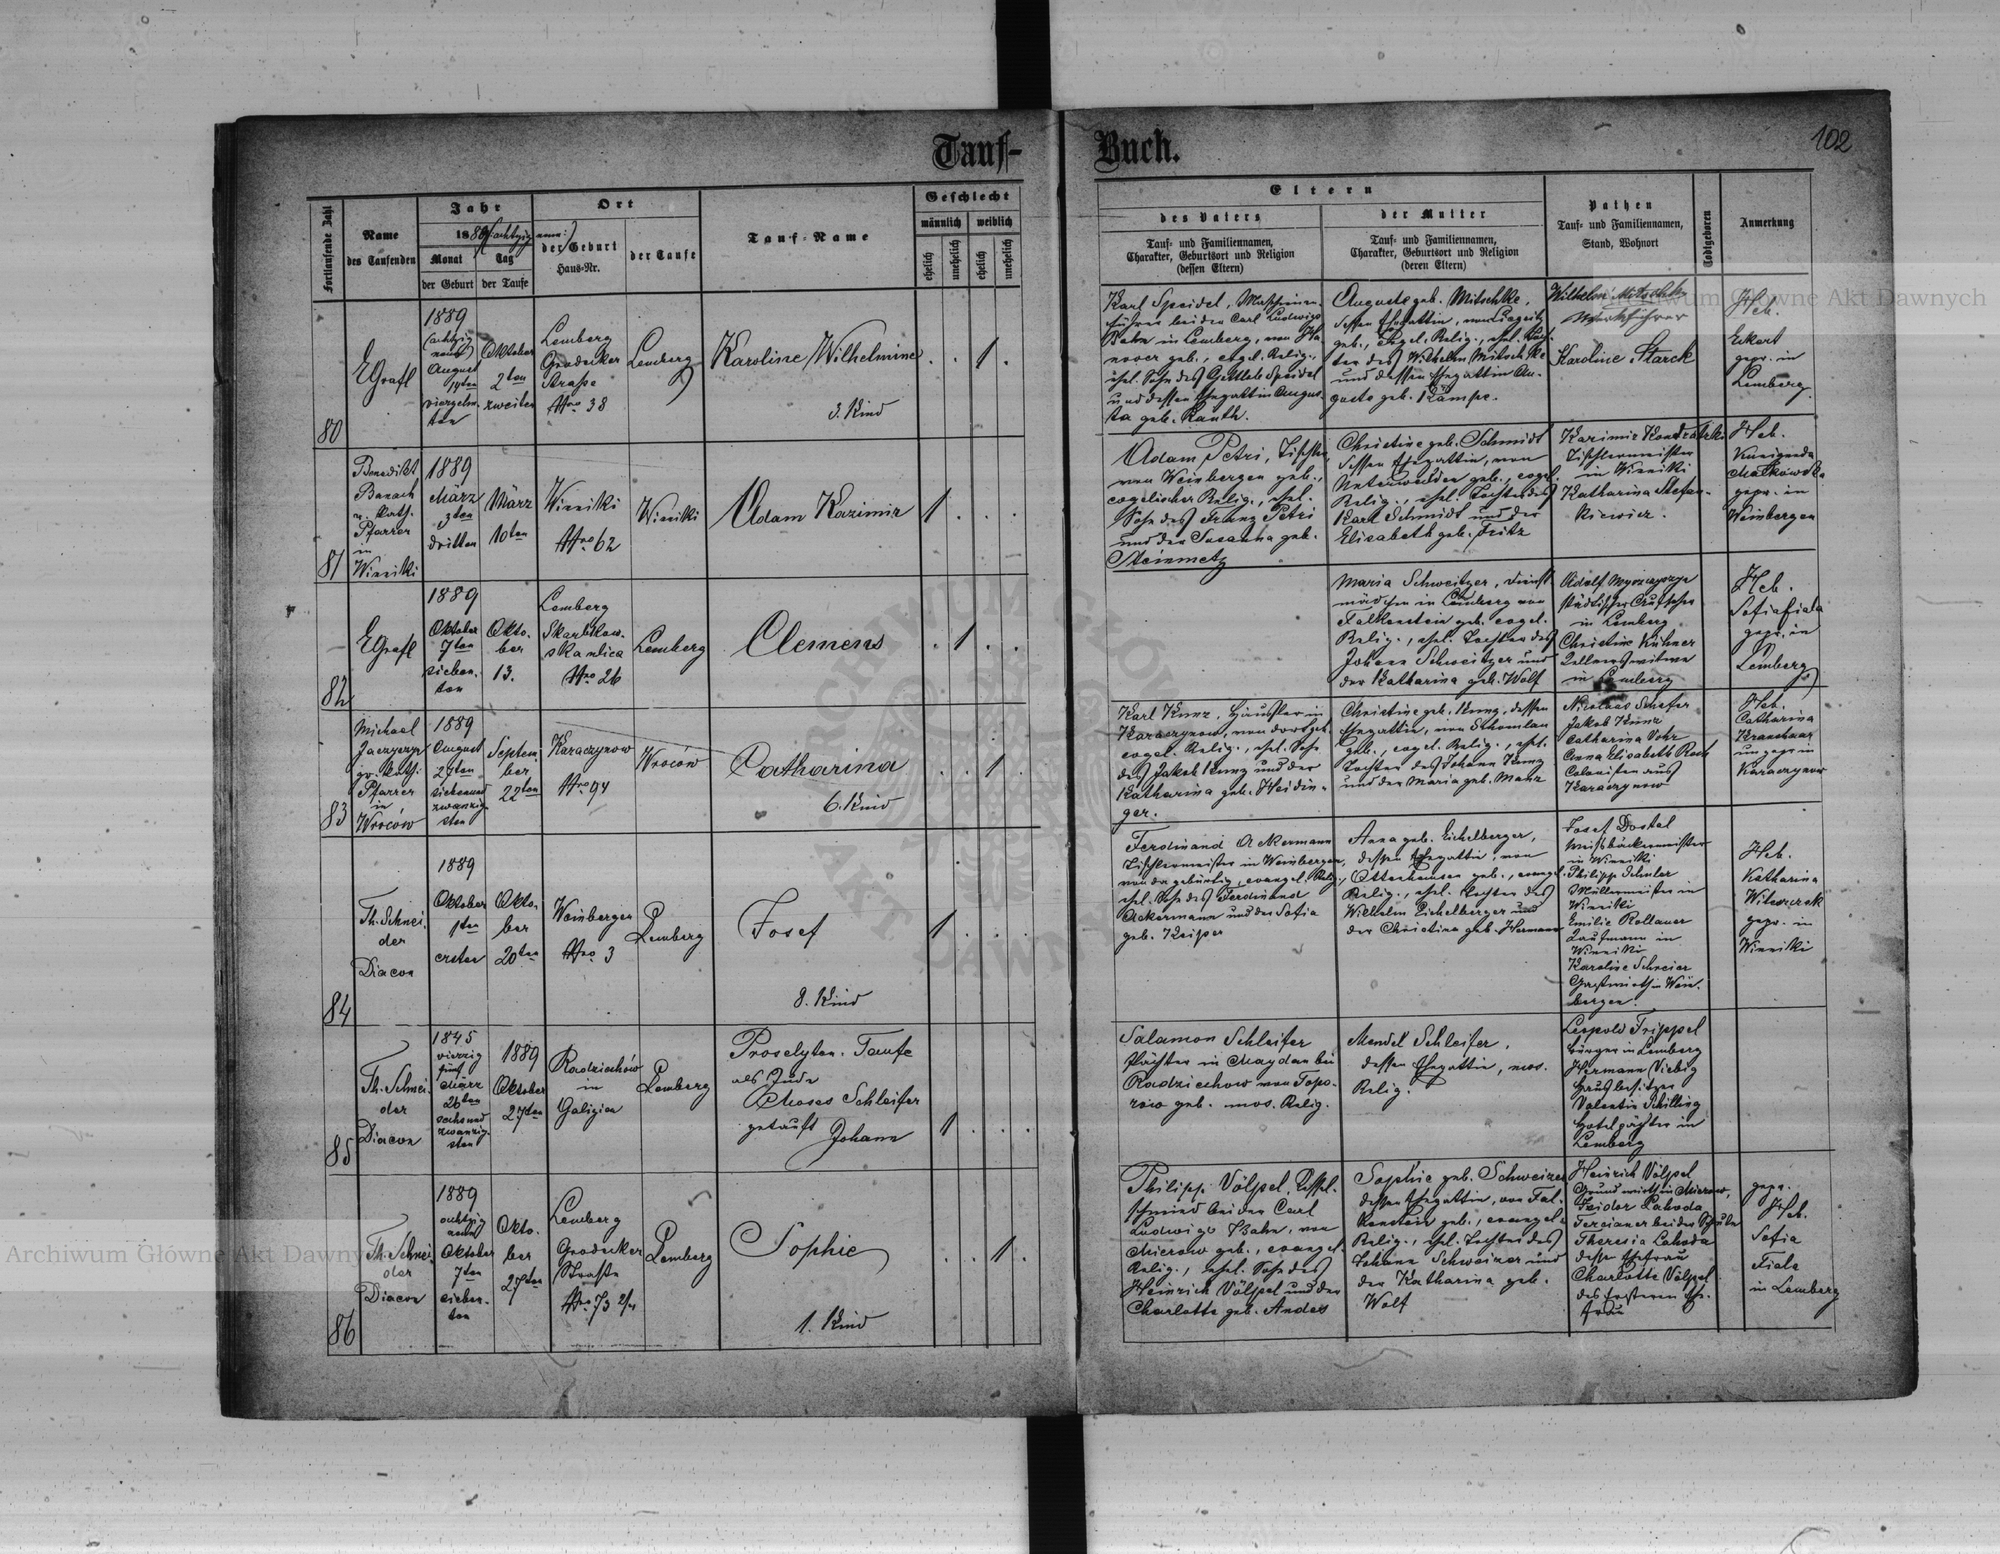 Tauf-
Buch.
102
Fortlaufende Zahl
Name
des Taufenden
Jahr
1889 (achtzig neun)
Monat
Tag
der Geburt
der Taufe
Ort
der Geburt
Haus-Nr.
der Taufe
Tauf-Name
Geschlecht
männlich
weiblich
ehelich
unehelich
ehelich
unehelich
Eltern
des Vaters
Tauf- und Familiennamen,
Charakter, Geburtsort und Religion
(dessen Eltern)
der Mutter
Tauf- und Familiennamen,
Charakter, Geburtsort und Religion
(deren Eltern)
Pathen
Tauf- und Familiennamen,
Stand, Wohnort
Todtgeboren
Anmerkung
80
EGrafl
1889
(achtzig
neun)
August
14ten
vierzehn-
ten
Oktober
2ten
zweiten
Lemberg
Grodecker
Straße
Nro 38
Lemberg
Karoline Wilhelmine
3. Kind
1
Karl Speidel, Maschinen-
führer bei der Carl Ludwigs
Bahn in Lemberg, von Ha-
nover geb., evgel. Relig.,
ehel. Sohn des Gottlieb Speidel
und dessen Ehegattin Augus-
ta geb. Rauth.
Auguste geb. Mitschke,
dessen Ehegattin, von Liegnitz
geb., evgel. Relig., ehel. Toch-
ter des Wilhelm Mitschke
und dessen Ehegattin Au-
guste geb. Kämpe.
Wilhelm Mitschke
Werkführer
Karoline Starck
Heb.
Eckert
gepr. in
Lemberg.
81
Benedikt
Banach
r. kath.
Pfarrer
in
Winniki
1889
März
3ten
dritten
März
10ten
Winniki
Nro 62
Winniki
Adam Kazimir
1
Adam Petri, Tischler
von Weinbergen geb.,
evgelischer Relig., ehel.
Sohn des Franz Petri
und der Susanna geb.
Steinmetz
Christine geb. Schmidt
dessen Ehegattin, von
Unterwalden geb., evgel.
Relig., ehel. Tochter des
Karl Schmidt und der
Elisabeth geb. Fritz
Kazimir Kondratzki
Tischlermeister
in Winniki
Katharina Stefan-
kiewicz.
Heb.
Kunigunda
Matkowska
gepr. in
Weinbergen
82
EGrafl
1889
Oktober
7ten
sieben-
ten
Okto-
ber
13.
Lemberg
Skarbkow-
ska ulica
Nro 26
Lemberg
Clemens
1
Maria Schweitzer, Dienst-
mädchen in Lemberg von
Falkenstein geb. evgel.
Relig., ehel. Tochter des
Johann Schweitzer und
der Katharina geb. Wolf
Adolf
städtischer Aufseher
in Lemberg
Christine Kühner
Zellnerswitwe
in Lemberg
Heb.
Sofia Fiala
gepr. in
Lemberg
83
Michael
Jaczyszyn
gr. kath.
Pfarrer
in
Wrocòw
1889
August
27ten
siebenund
zwanzig-
sten
Septem-
ber
22ten
Karaczynow
Nro 94
Wrocòw
Catharina
6. Kind
1
Karl Kunz, Häusler in
Karaczynow, von dort geb.
evgel. Relig., ehel. Sohn
des Jakob Kunz und der
Katharina geb. Heidin-
ger.
Christine geb. Kunz, dessen
Ehegattin, von Schomlau
geb., evgel. Relig., ehel.
Tochter des Johann Kunz
und der Maria geb. Manz
Nicolaus Schefer
Jakob Kunz
Catharina Vohr
Anna Elisabeth Roch
Colonisten aus
Karaczynow
Heb.
Catharina
Kranchaar
ungepr. in
Karaczynow
84
Th. Schnei-
der
Diacon
1889
Oktober
1ten
ersten
Okto-
ber
20ten
Weinbergen
Nro 3
Lemberg
Josef
8. Kind
1
Ferdinand Ackermann
Tischlermeister in Weinbergen,
von da gebürtig, evangel. Relig.,
ehel. Sohn des Ferdinand
Ackermann und der Sofia
geb. Keiper
Anna geb. Eichelberger,
dessen Ehegattin, von
Ottenhausen geb., evangel.
Relig., ehel. Tochter des
Wilhelm Eichelberger und
der Christina geb. Hermann
Josef Dostal
Weißbäckermeister
in Winniki
Philipp Schuler
Müllermeister in
Winniki
Emilie Rollauer
Kaufmann in
Winniki
Karoline Schreier
Gastwirth in Wein-
bergen.
Heb.
Katharina
Witwarek
gepr. in
Winniki
85
Th. Schnei-
der
Diacon
1845
vierzig
fünf
März
26ten
sechsund
zwanzig-
sten
1889
Oktober
27ten
Radziechów
in
Galizien
Lemberg
Proselyten-Taufe
als Jude
Moses Schleifer
getauft Johann
1
Salamon Schleifer
Pächter in Maydan bei
Radziechow von Topo-
row geb. mos. Relig.
Mendel Schleifer,
dessen Ehegattin, mos.
Relig.
Leopold Trippel
Bürger in Lemberg
Hermann Viebig
Hausbesitzer
Valentin Schilling
Hotelpächter in
Lemberg
86
Th. Schnei-
der
Diacon
1889
achtzig
neun
Oktober
7ten
sieben-
ten
Okto-
ber
27ten
Lemberg
Grodecker
Straße
Nro 73 2/4
Lemberg
Sophie
1. Kind
1
Philipp Völpel, Kessel-
schmied bei der Carl
Ludwigs Bahn, von
Mierow geb., evangel.
Relig., ehel. Sohn des
Heinrich Völpel und der
Charlotte geb. Andes
Sophie geb. Schweizer
dessen Ehegattin, von Fal-
kenstein geb., evangel.
Relig., ehel. Tochter des
Johann Schweizer und
der Katharina geb.
Wolf
Heinrich Völpel
Grundwirth in Mierow,
Feidor Lahoda
Tercianer bei der Schule
Theresia Lahoda
dessen Ehefrau
Charlotte Völpel
des Ersteren Ehe-
frau
gepr.
Heb.
Sofia
Fiala
in Lemberg
Archiwum Główne Akt Dawnych
Archiwum Główne Akt Dawnych